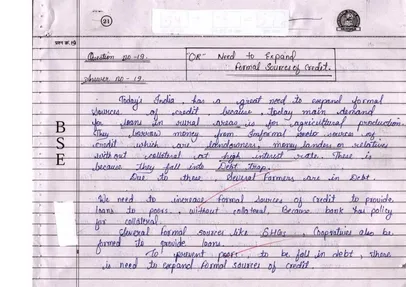 21
प्रश्न क्र.
Question no-19.
"OR" Need to Expand
formal Sources of Credit.
Answer no - 19.
Today's India, has a great need to expand formal
sources of credit because, today main demand
for loans in rural areas is for agricultural production.
They borrow money from Informal sources of
credit which are landowners, money landers or relatives
without collateral at high interest rate. There is
because they fall into Debt Trap.
Due to these, Several Farmers are in Debt.
We need to increase formal sources of credit to provide
loans to poors, without collateral. Because bank has policy
for collateral.
Several formal sources like SHGs, Cooperatives also be
formed to provide loans.
To prevent poors, to be fall in debt, there
is need to expand formal sources of credit.
B
S
E